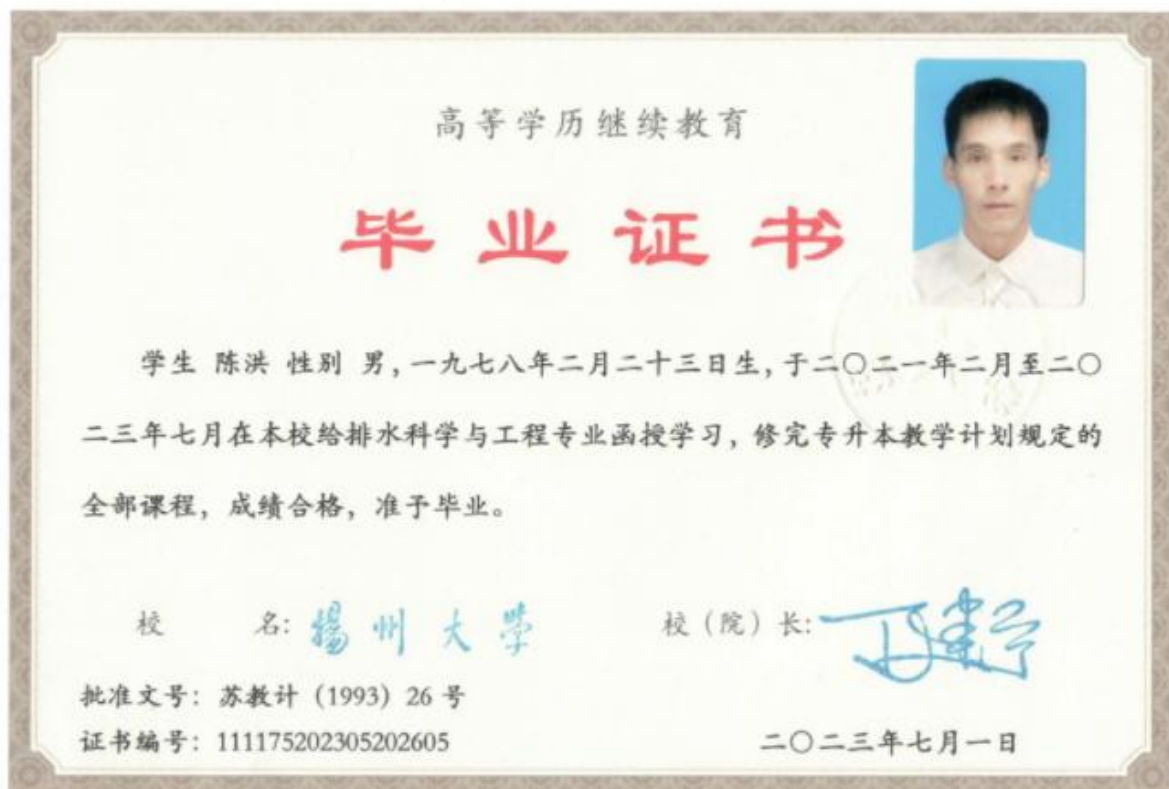 高等学历继续教育
毕业证书
学生 陈洪 性别 男，一九七八年二月二十三日生，于二〇二一年二月至二〇
二三年七月在本校给排水科学与工程专业函授学习，修完专升本教学计划规定的
全部课程，成绩合格，准予毕业。
校 名：揚州大學 校（院）长：
批准文号：苏教计（1993）26 号
证书编号：111175202305202605 二〇二三年七月一日